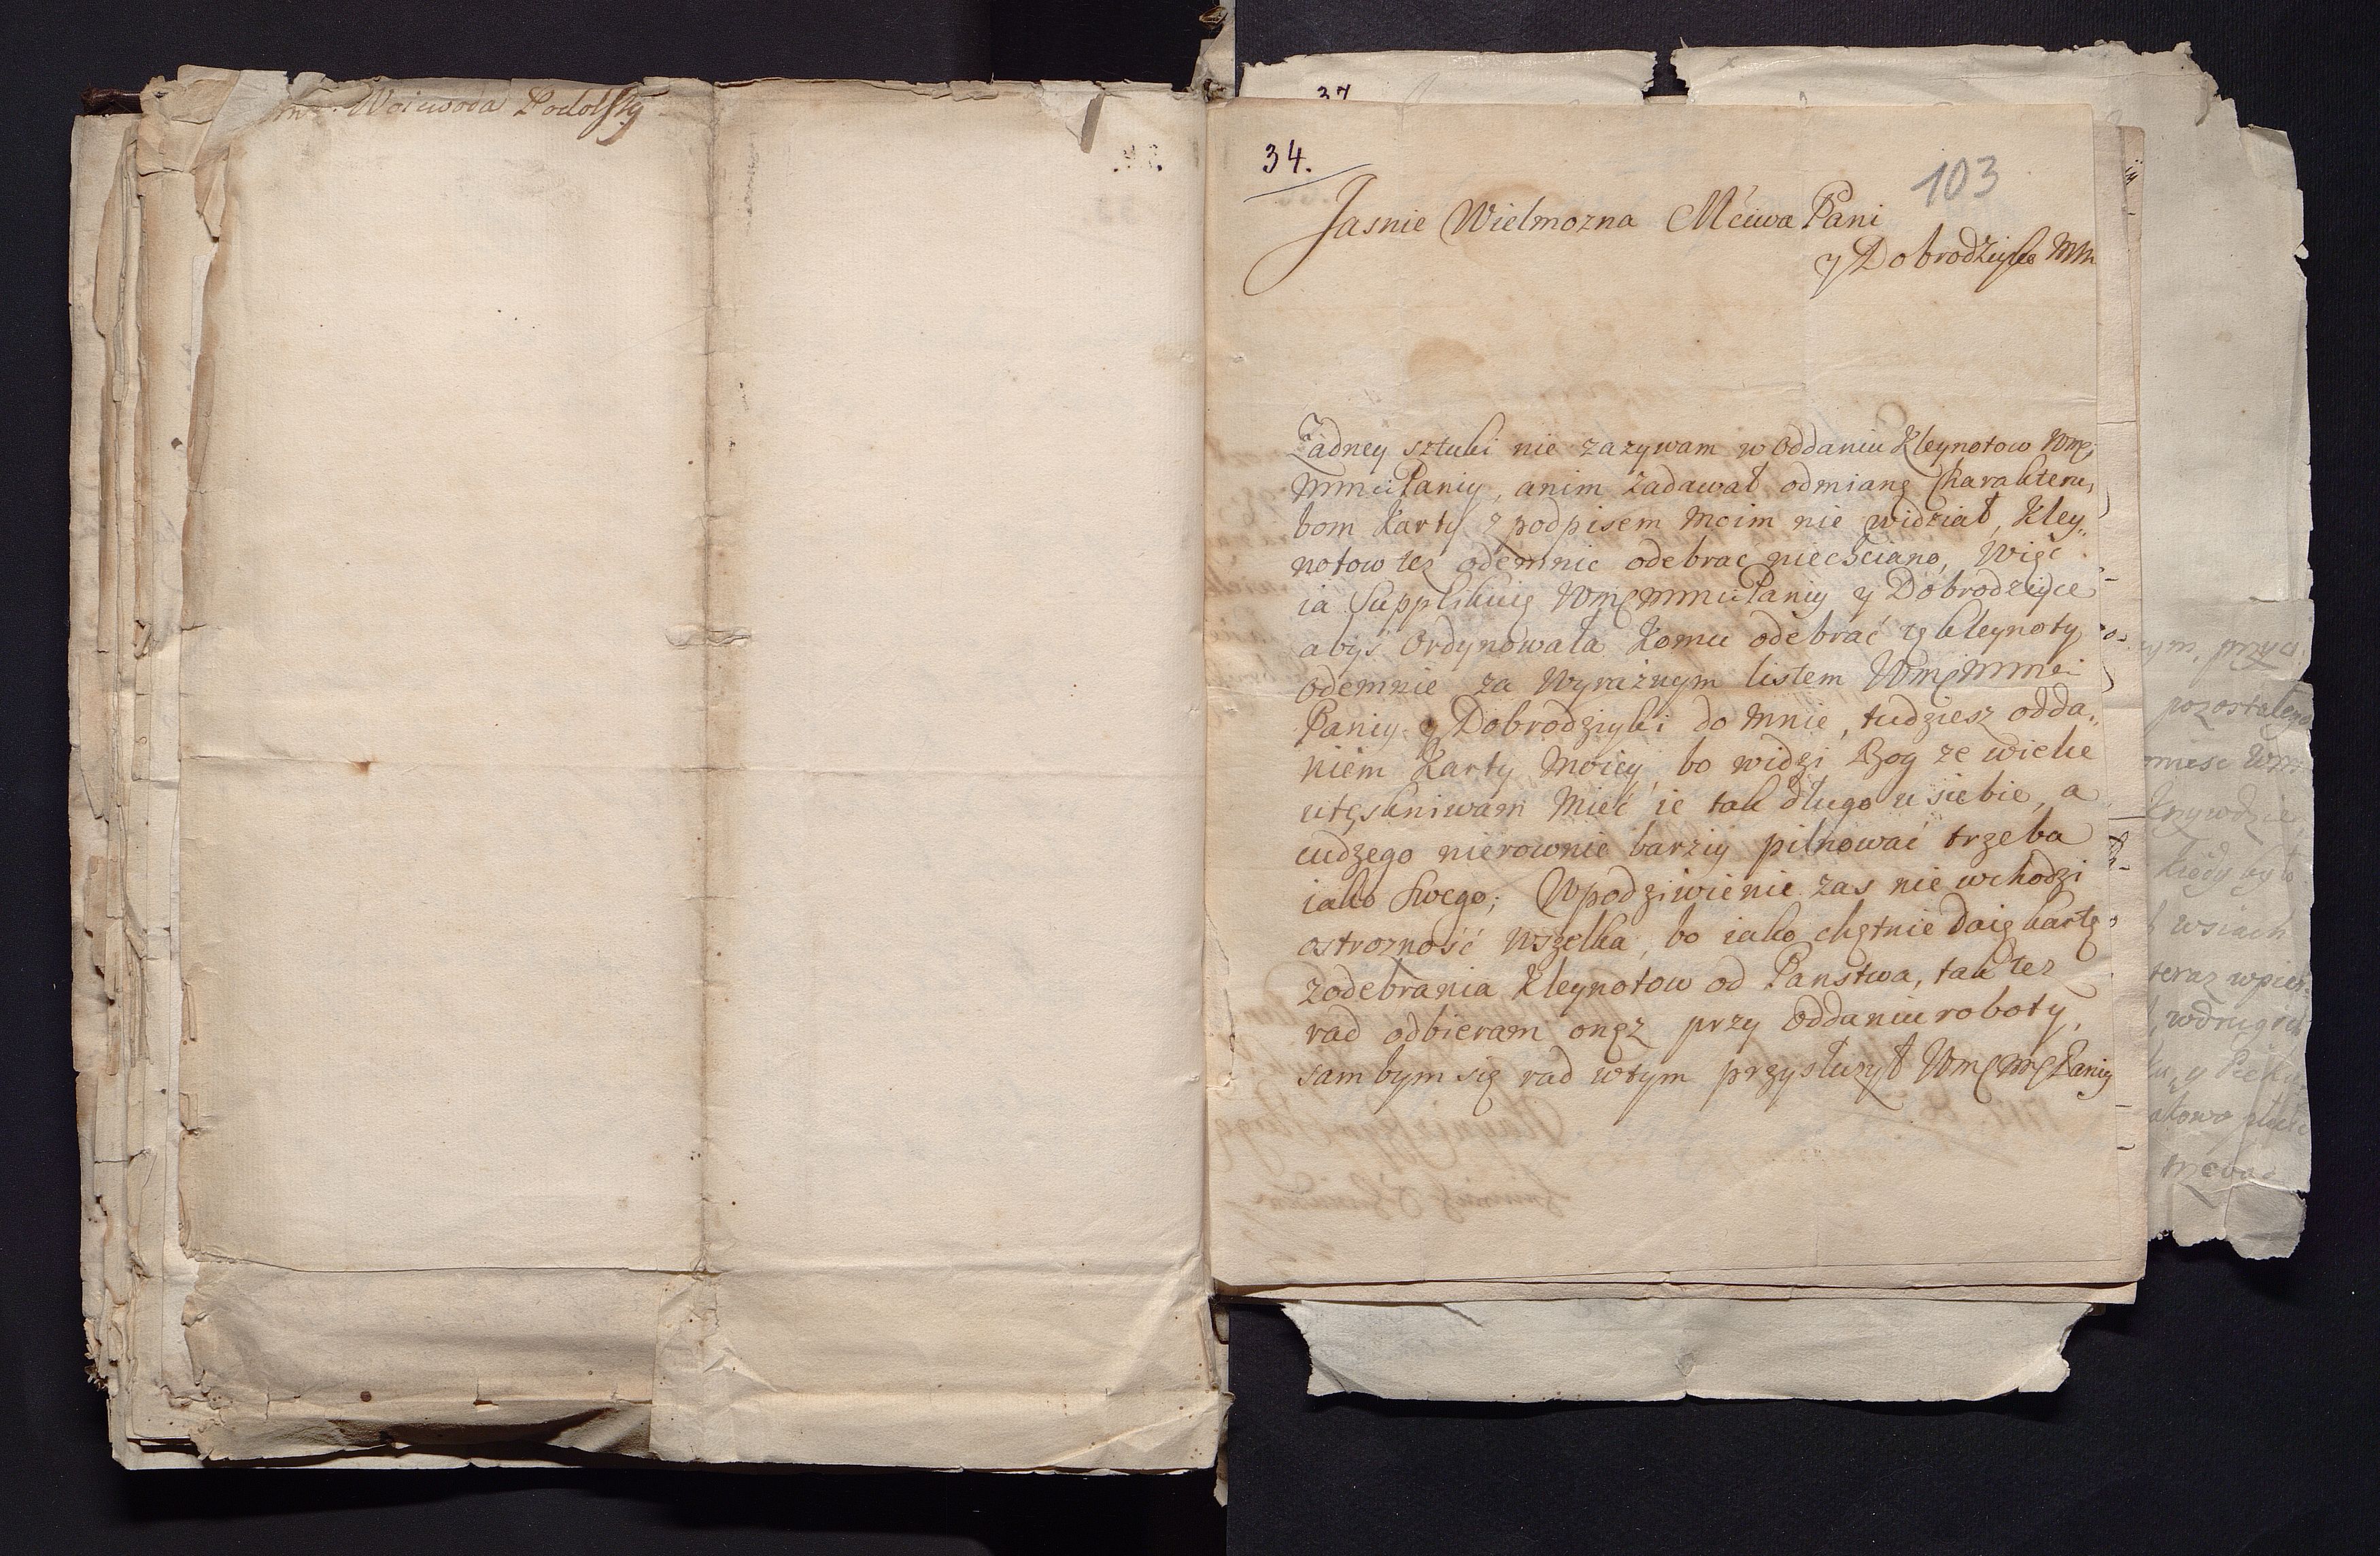 Woiewoda Podolsky
37
34.
103
Jasnie Wielmozna Mćiwa Pani
y Dobrodziyko MM
Zadney sztuki nie zazywam w oddaniu Kleynotow
Paniy, anim zadawał odmianę Charakteru,
bom Karty z podpisem Moim nie widział, Kley„
notow tez odemnie odebrac niechciano, Więc
ia Supplikuię Paniy y Dobrodziyce
abyś Ordynowała Komu odebrać te kleynoty
odemnie za Wyraznym listem
Paniy y Dobrodziyki do Mnie, tudziesz odda„
niem Karty Moiey, bo widzi Bog ze wielce
utęskniwam Mieć ie tak długo u siebie, a
cudzego nierownie barziy pilnować trzeba
iako Swego; Wpodziwienie zas nie wchodzi
ostroznosć Wszelka, bo iako chętnie daię kartę
zodebrania Kleynotow od Panstwa, tak tez
rad odbieram onęz przy oddaniu roboty,
sam bym się rad wtym przysłuzył Paniy
pozostałego
Krzywdzie
kiedy było
wsiach
teraz wpier